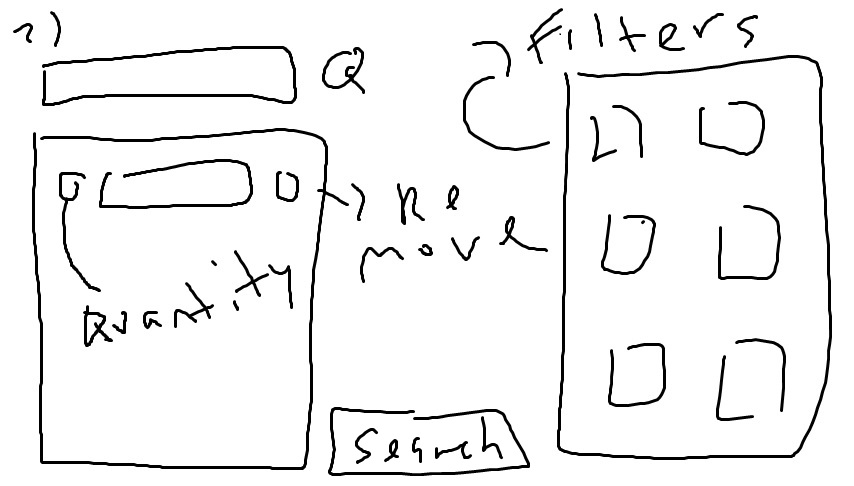 2)
Filters
Q
Re
move
Quantity
Search